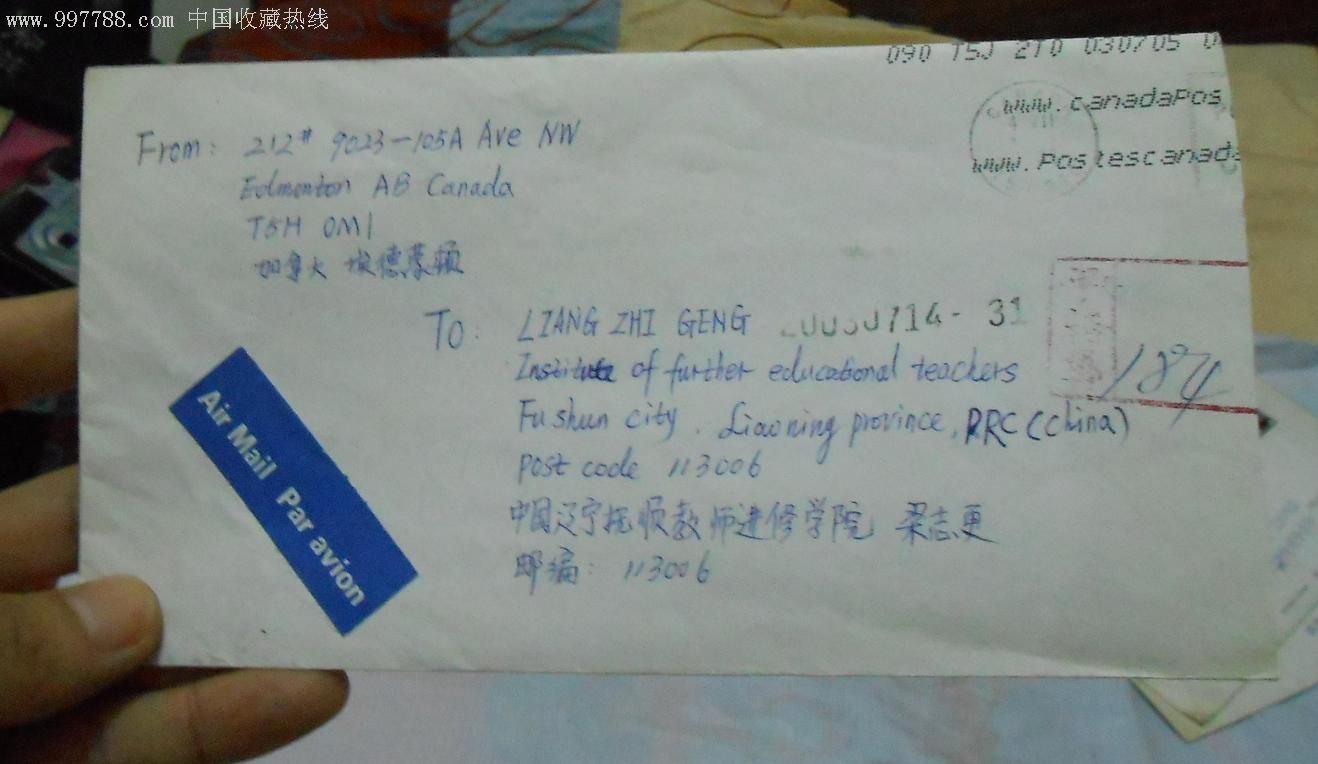 www.997788.com 中国收藏热线
090 T5J 2T0 030705 0
www.canadaPos
www.Postescanada
From: 212# 9023-105A Ave NW
Edmonton AB Canada
T5H 0M1
加拿大 埃德蒙顿
To: LIANG ZHI GENG
20030714- 31
Institute of further educational teachers
Fushun city. Liaoning province, PRC (China)
184
post code 113006
中国辽宁抚顺教师进修学院 梁志更
邮编: 113006
Air Mail Par avion